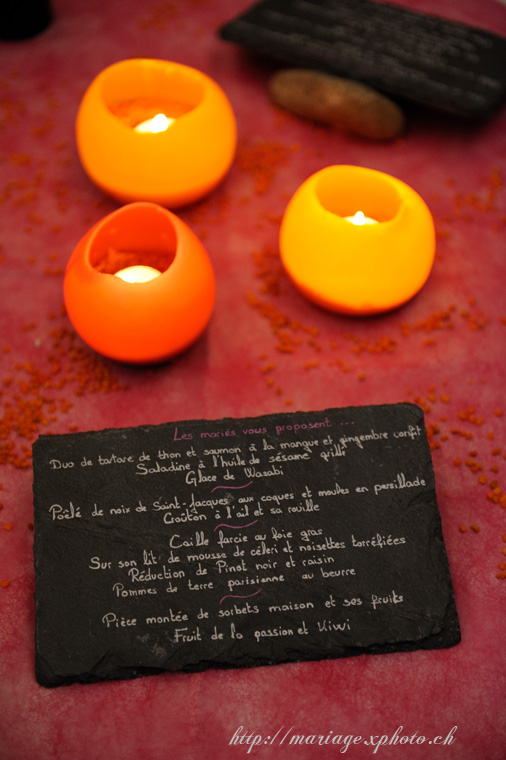 Les mariés vous proposent ...
Duo de tartare de thon et saumon à la mangue et gingembre confit
Saladine à l'huile de sésame grillé
Glace de Wasabi
Poêlé de noix de Saint-Jacques aux coques et moules en persillade
Croûton à l'ail et sa rouille
Caille farcie au foie gras
Sur son lit de mousse de céleri et noisettes torréfiées
Réduction de Pinot noir et raisin
Pommes de terre parisienne au beurre
Pièce montée de sorbets maison et ses fruits
Fruit de la passion et Kiwi
http://mariage.xphoto.ch